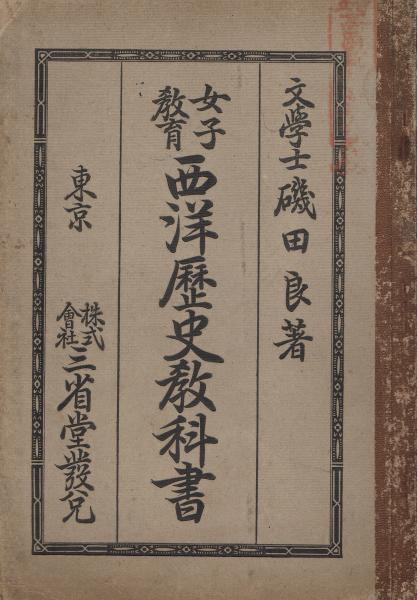 文學士 磯田良著
女子
教育
西洋歷史教科書
東京
株式
會社
三省堂發兌